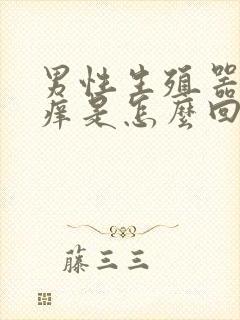 男性生殖器
痒是怎麼回
藤三三